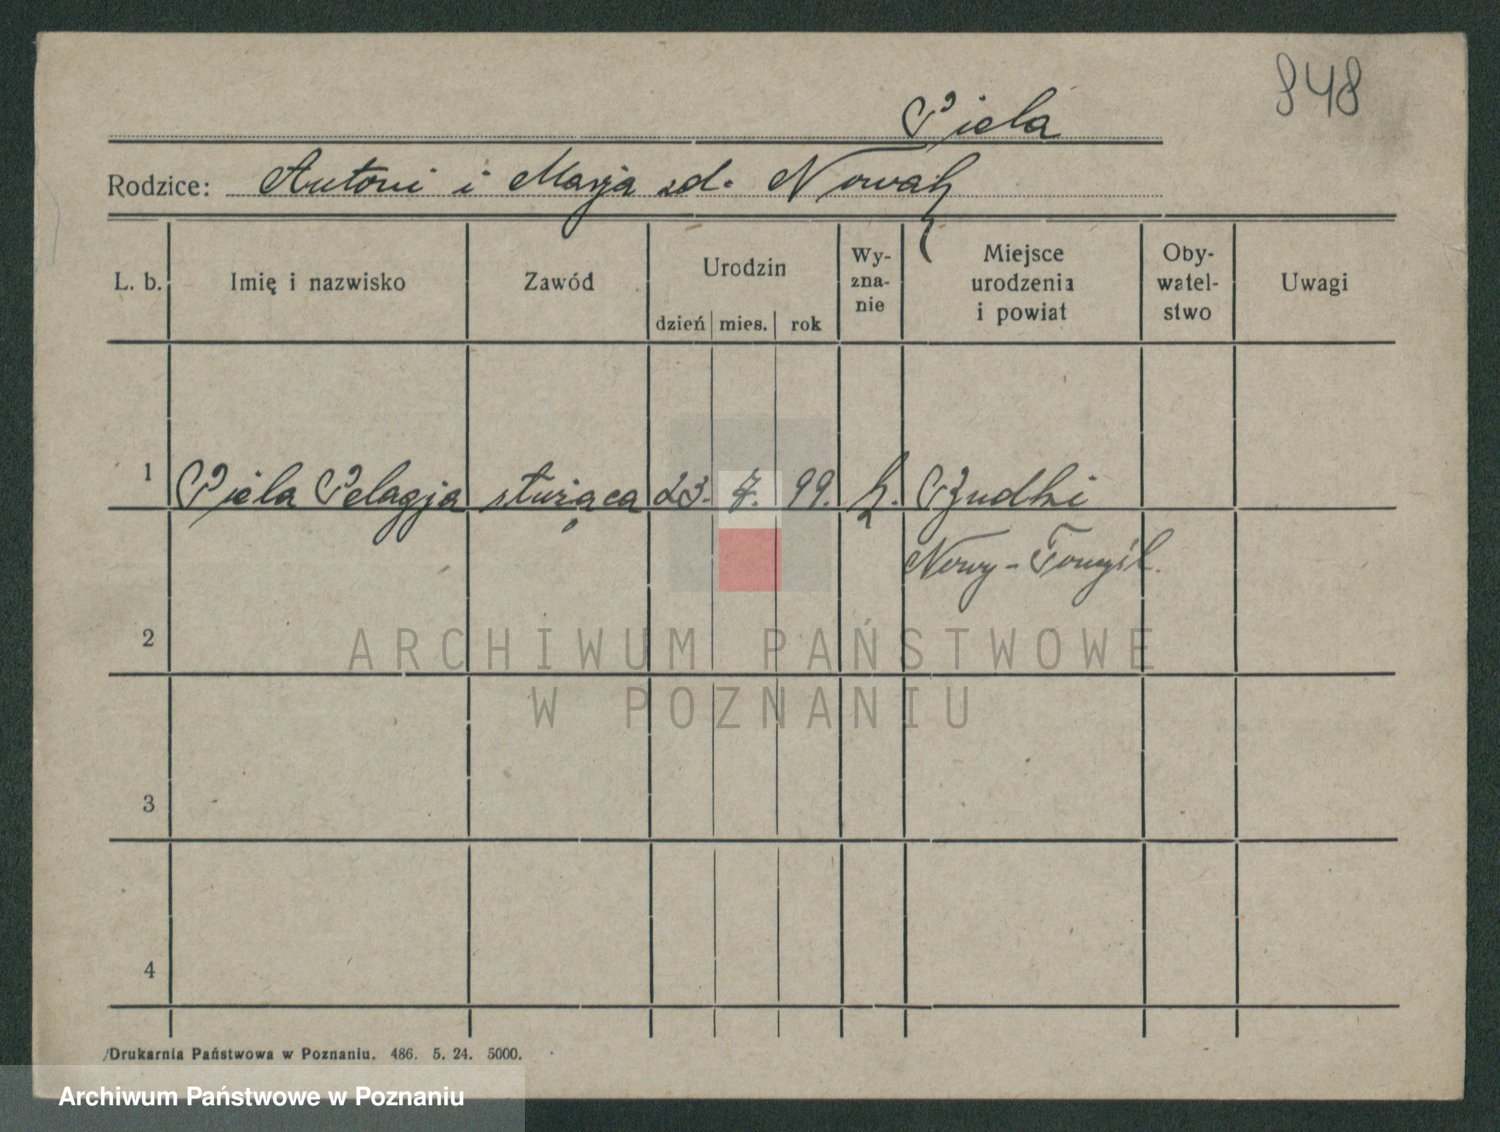 848
Piela
Rodzice: Antoni i Marja zd. Nowak
L. b.
Imię i nazwisko
Zawód
Urodzin
dzień mies. rok
Wy-
zna-
nie
Miejsce
urodzenia
i powiat
Oby-
watel-
stwo
Uwagi
1 Piela Pelagja służąca 23. 7. 99. k.
Nowy-Tomyśl.
2
3
4
ARCHIWUM PAŃSTWOWE
W POZNANIU
Drukarnia Państwowa w Poznaniu. 486. 5. 24. 5000.
Archiwum Państwowe w Poznaniu